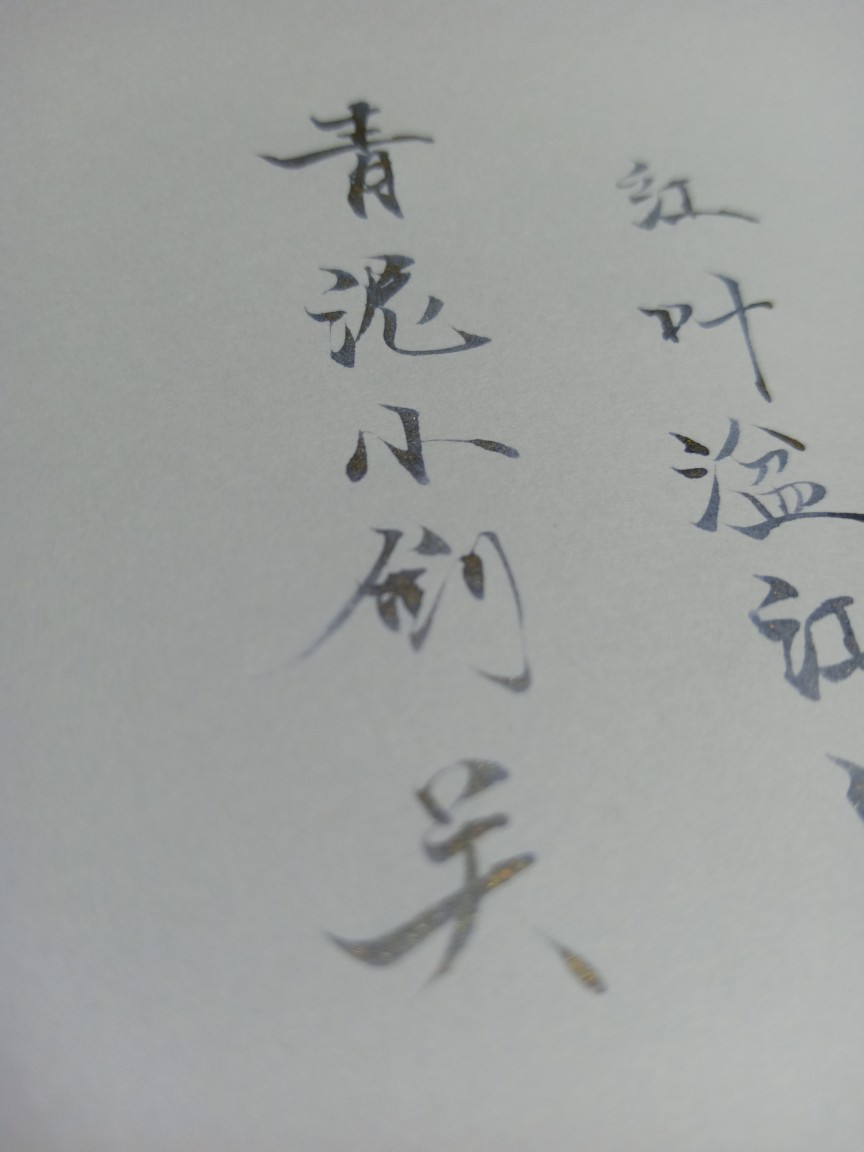 青泥小剑关
红叶湓江